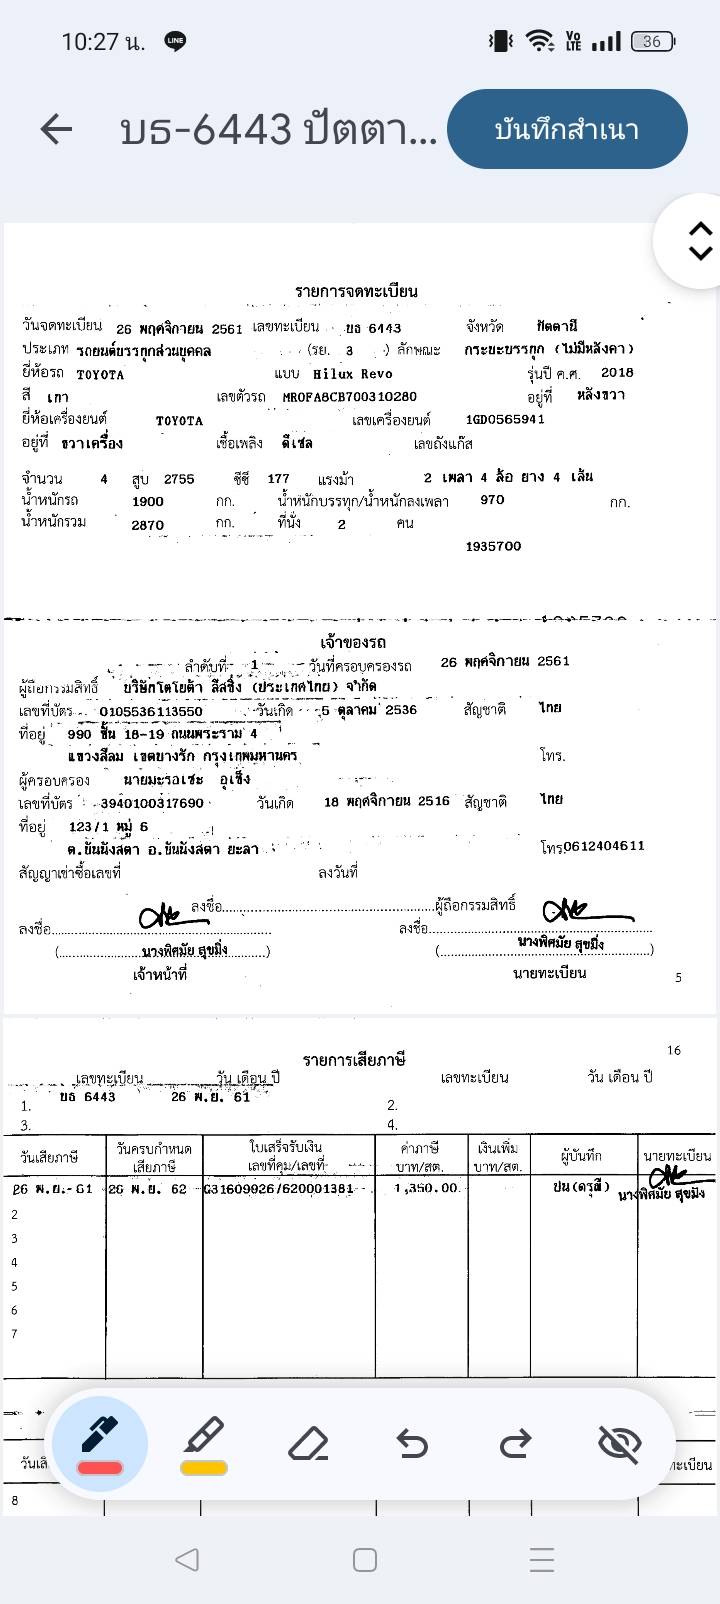 10:27 น. LINE Vo LTE 36
บธ-6443 ปัตตา... บันทึกสำเนา
รายการจดทะเบียน
วันจดทะเบียน 26 พฤศจิกายน 2561 เลขทะเบียน บธ 6443 จังหวัด ปัตตานี
ประเภท รถยนต์บรรทุกส่วนบุคคล (รย. 3 ) ลักษณะ กระบะบรรทุก (ไม่มีหลังคา)
ยี่ห้อรถ TOYOTA แบบ Hilux Revo รุ่นปี ค.ศ. 2018
สี เทา เลขตัวรถ MR0FA8CB700310280 อยู่ที่ หลังขวา
ยี่ห้อเครื่องยนต์ TOYOTA เลขเครื่องยนต์ 1GD0565941
อยู่ที่ ขวาเครื่อง เชื้อเพลิง ดีเซล เลขถังแก๊ส
จำนวน 4 สูบ 2755 ซีซี 177 แรงม้า 2 เพลา 4 ล้อ ยาง 4 เส้น
น้ำหนักรถ 1900 กก. น้ำหนักบรรทุก/น้ำหนักลงเพลา 970 กก.
น้ำหนักรวม 2870 กก. ที่นั่ง 2 คน
1935700
เจ้าของรถ
ลำดับที่ 1 วันที่ครอบครองรถ 26 พฤศจิกายน 2561
ผู้ถือกรรมสิทธิ์ บริษัทโตโยต้า ลีสซิ่ง (ประเทศไทย) จำกัด
เลขที่บัตร 0105536113550 วันเกิด 5 ตุลาคม 2536 สัญชาติ ไทย
ที่อยู่ 990 ชั้น 18-19 ถนนพระราม 4
แขวงสีลม เขตบางรัก กรุงเทพมหานคร โทร.
ผู้ครอบครอง นายมะรอเซะ อุเซ็ง
เลขที่บัตร 3940100317690 วันเกิด 18 พฤศจิกายน 2516 สัญชาติ ไทย
ที่อยู่ 123/1 หมู่ 6
ต.บันนังสตา อ.บันนังสตา ยะลา โทร.0612404611
สัญญาเช่าซื้อเลขที่ ลงวันที่
ลงชื่อ ผู้ถือกรรมสิทธิ์
ลงชื่อ ลงชื่อ
(นางพิศมัย สุขมิ่ง) (นางพิศมัย สุขมิ่ง)
เจ้าหน้าที่ นายทะเบียน 5
16
รายการเสียภาษี
เลขทะเบียน วัน เดือน ปี เลขทะเบียน วัน เดือน ปี
1. บธ 6443 26 พ.ย. 61 2.
3. 4.
วันเสียภาษี วันครบกำหนด เสียภาษี ใบเสร็จรับเงิน เลขที่คุม/เลขที่ ค่าภาษี บาท/สต. เงินเพิ่ม บาท/สต. ผู้บันทึก นายทะเบียน
26 พ.ย. 61 26 พ.ย. 62 G31609926/620001381 1,350.00 ปน(ดรุณี) นางพิศมัย สุขมิ่ง
2
3
4
5
6
7
วันเสี ทะเบียน
8